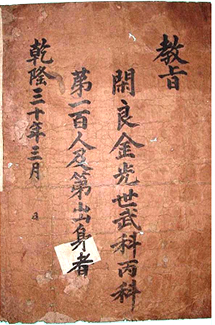 教旨
閑良金光世武科丙科
第一百人及第出身者
乾隆三十年三月